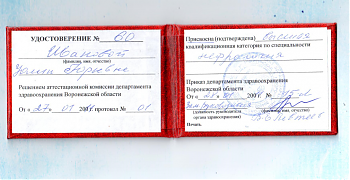 УДОСТОВЕРЕНИЕ № 60
Ивановой
(фамилия, имя, отчество)
Юлии Юрьевне
Решением аттестационной комиссии департамента
здравоохранения Воронежской области
от 27. 01 200 г. протокола № 01
Присвоена (подтверждена) высшая
квалификационная категория по специальности
нефрология
Приказ департамента здравоохранения
Воронежской области
от 200 г.
(должность руководителя
органа здравоохранения)
(фамилия, имя, отчество)
Печать